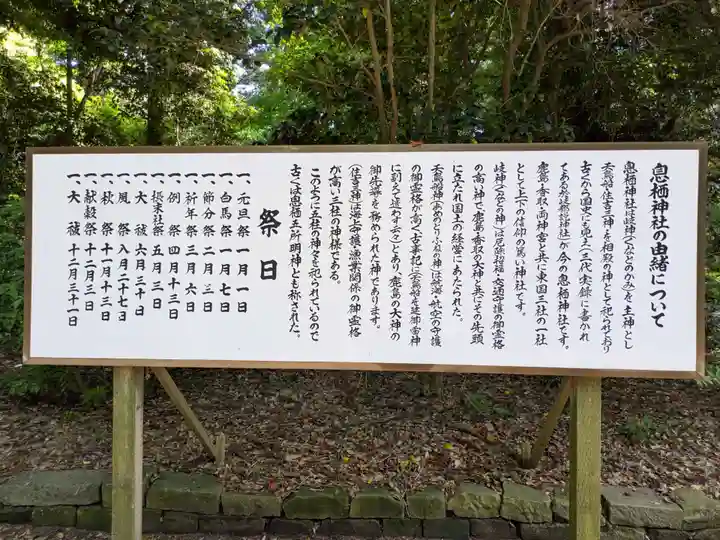 息栖神社の由緒について
息栖神社は岐神(くなどのかみ)を主神とし
天鳥船、住吉三神を相殿の神として祀られており
古くから国史にも見え(三代実録に書かれ
てある於岐都説神社)が今の息栖神社です。
鹿島・香取・両神宮と共に東国三社の一社
として上下の信仰の篤い神社です。
岐神(くなどの神)は厄除招福・交通守護の御霊格
の高い神で、鹿島・香取の大神と共にその先頭
にたたれ国土の経営にあたられた。
天鳥船神(あめのとりふねの神)は航海・航空の守護
の御霊格が高く古事記に(天鳥船を建御雷神
に副えて遣わす云々)とあり、鹿島の大神の
御先導を務められた神であります。
(住吉三神)は海上守護・漁業関係の御霊格
が高い三柱の神様である。
このように五柱の神々を祀られているので
古くは息栖五所明神とも称された。
祭日
一、元旦祭 一月一日
一、白馬祭 一月七日
一、節分祭 二月三日
一、祈年祭 三月六日
一、例祭 四月十三日
一、摂末社祭 五月三日
一、大祓 六月三十日
一、風祭 八月二十七日
一、秋祭 十一月十三日
一、献穀祭 十二月三日
一、大祓 十二月三十一日